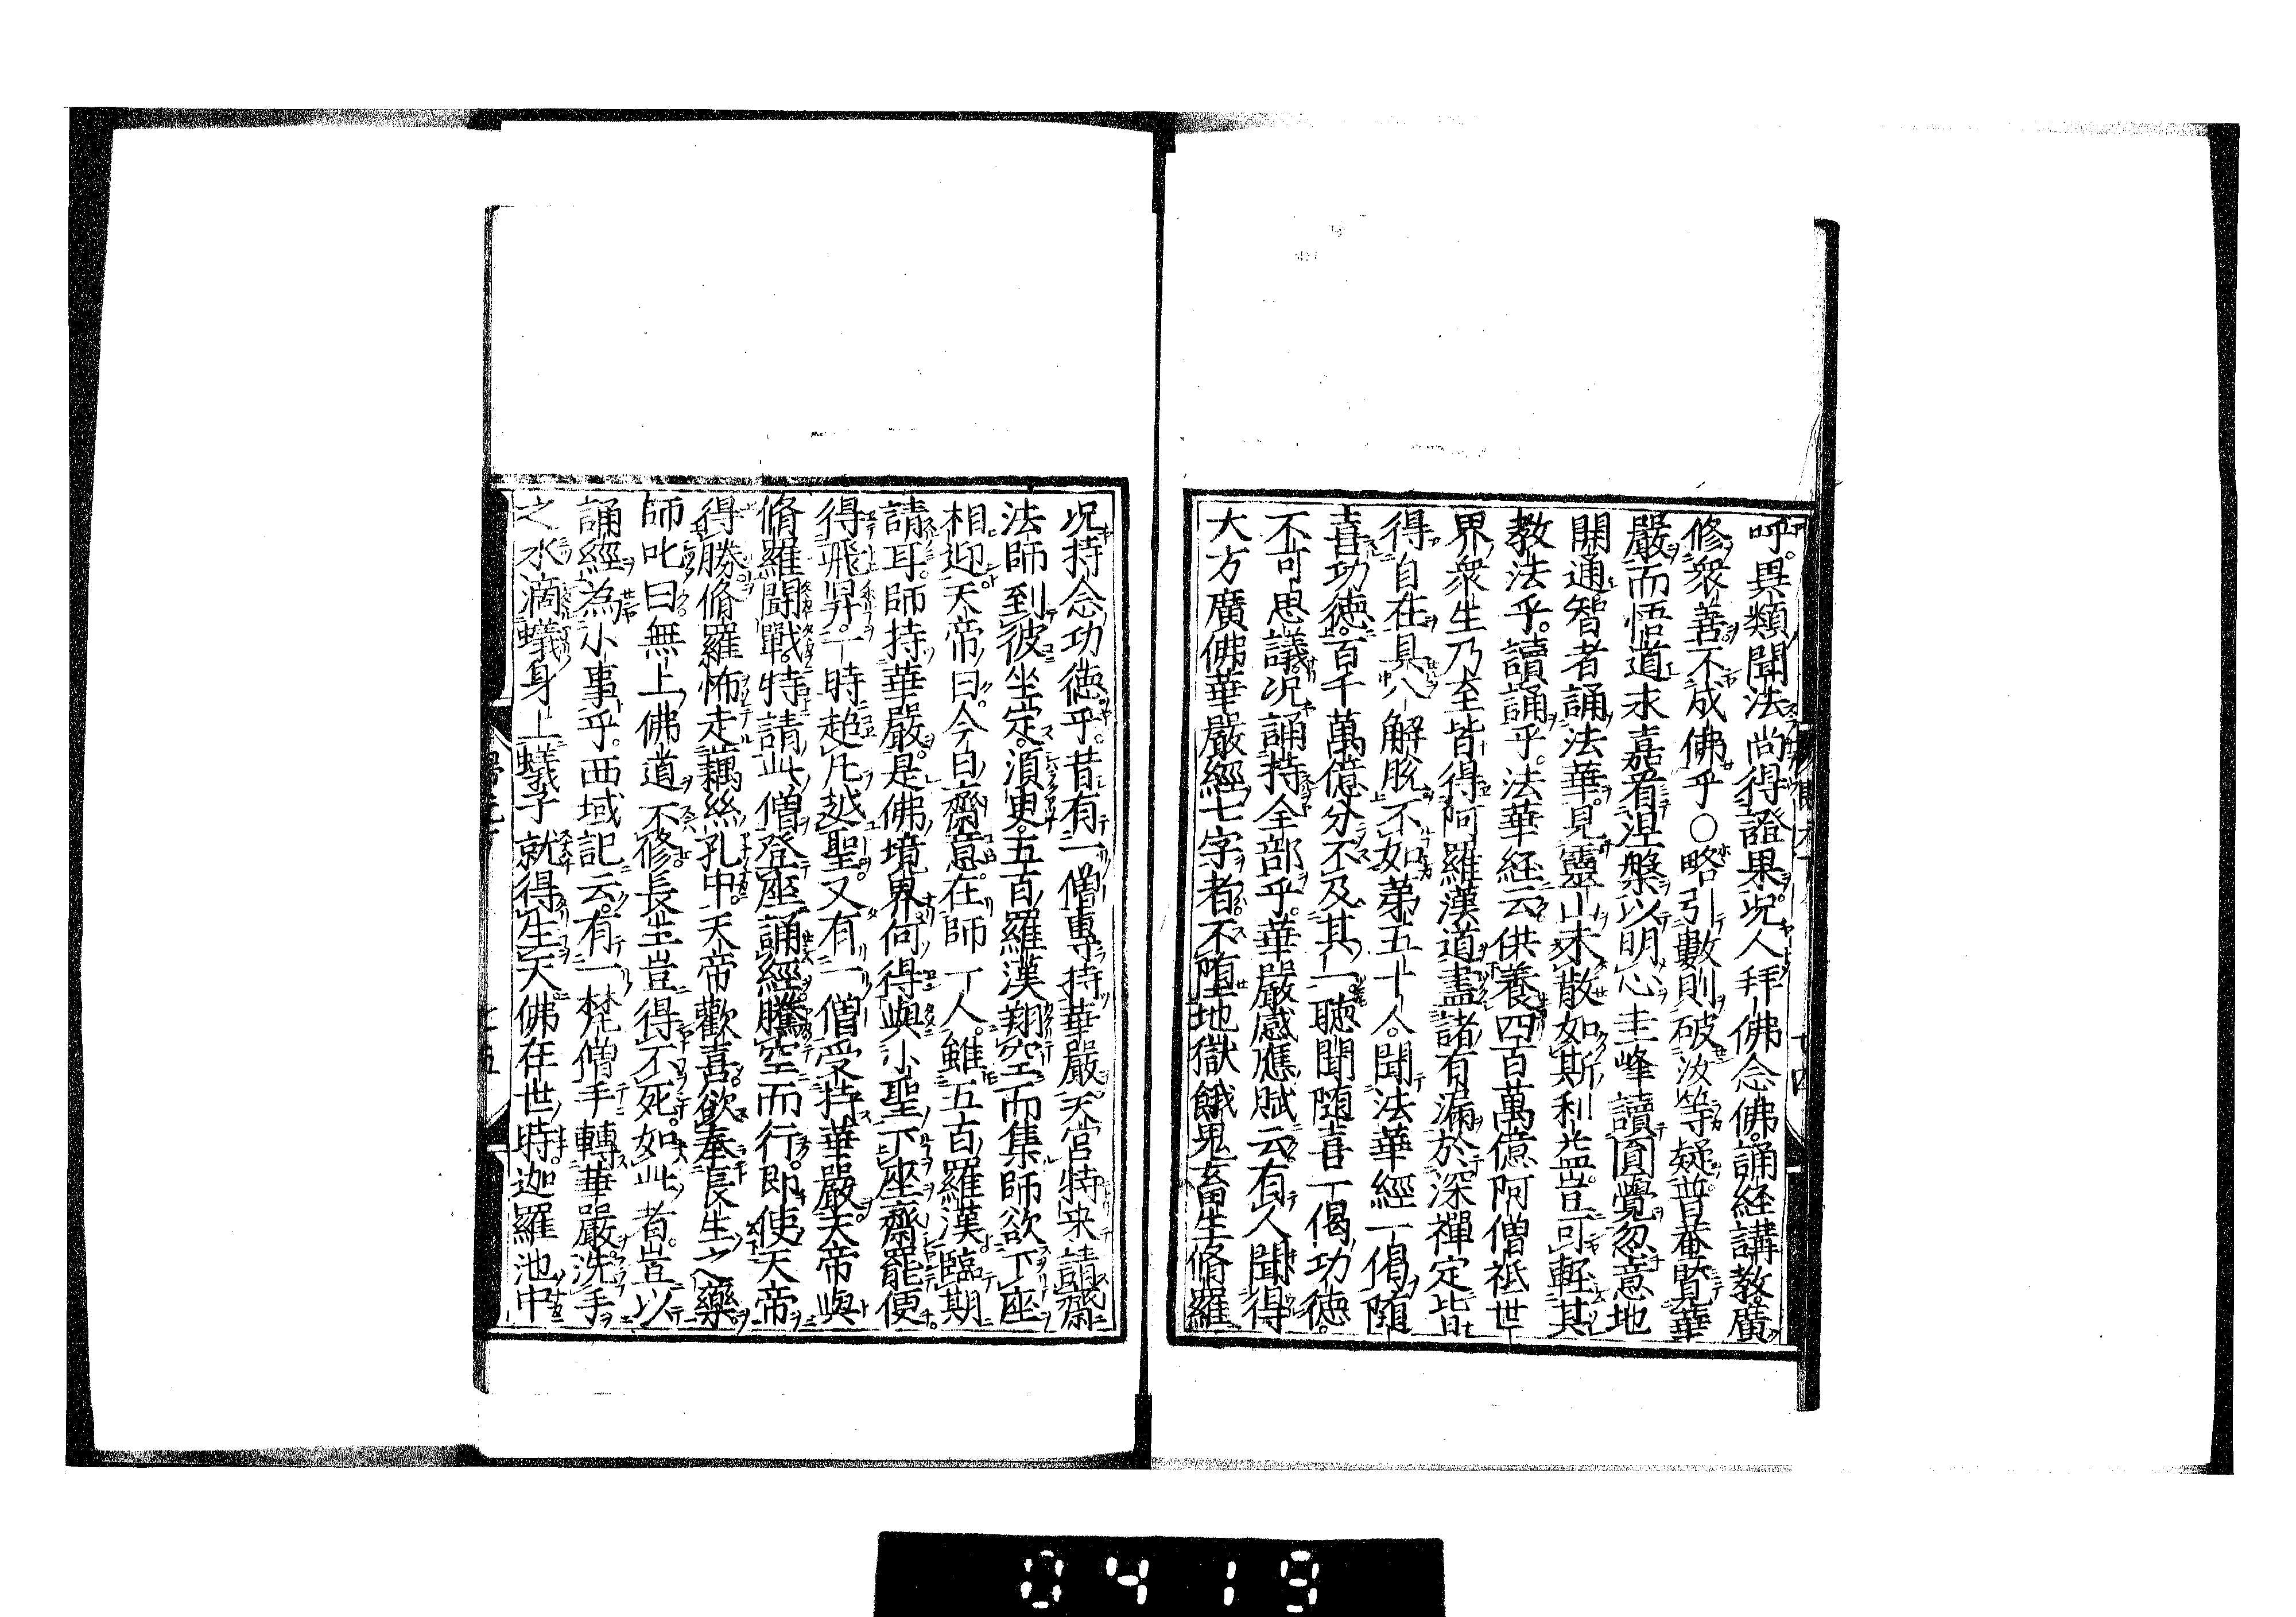 呼。異類聞法尚得證果。况人拜佛念佛。誦経講教。廣
修衆善不成佛乎○略引數則破汝等疑普菴覧華
嚴而悟道永嘉看涅槃以明心圭峰讀圓覺忽意地
開通。智者誦法華。見靈山未散如斯利益。豈可軽其
教法乎。讀誦乎。法華経云供養四百萬億阿僧祇世
界衆生乃至皆得阿羅漢道盡諸有漏於深禪定皆
得自在具八解脱不如第五十人。聞法華經一偈随
喜功徳。百千萬億分不及其一。聽聞随喜一偈功徳。
不可思議。况誦持全部乎。華嚴感應賦云有人聞得
大方廣佛華嚴經七字者不堕地獄餓鬼畜生脩羅
况持念功徳乎。昔有一僧專持華嚴。天宮特来請齋
法師到彼坐定。須臾五百羅漢翔空而集師欲下座
相迎天帝曰。今日齋意。在師一人。雖五百羅漢臨期
請耳。師持華嚴。是佛境界何得與小聖下座齋罷便
得飛昇。一時超凡越聖。又有一僧受持華嚴天帝與
脩羅鬪戰。特請此僧登座誦經。騰空而行。即使天帝
得勝脩羅怖走藕絲孔中。天帝歡喜。欲奉長生之藥。
師叱曰無上佛道不修。長生豈得不死。如此者。豈以
誦經為小事乎。西域記云。有一梵僧手轉華嚴。洗手
之水滴蟻身上蟻子就得生天佛在世時。迦羅池中
0419